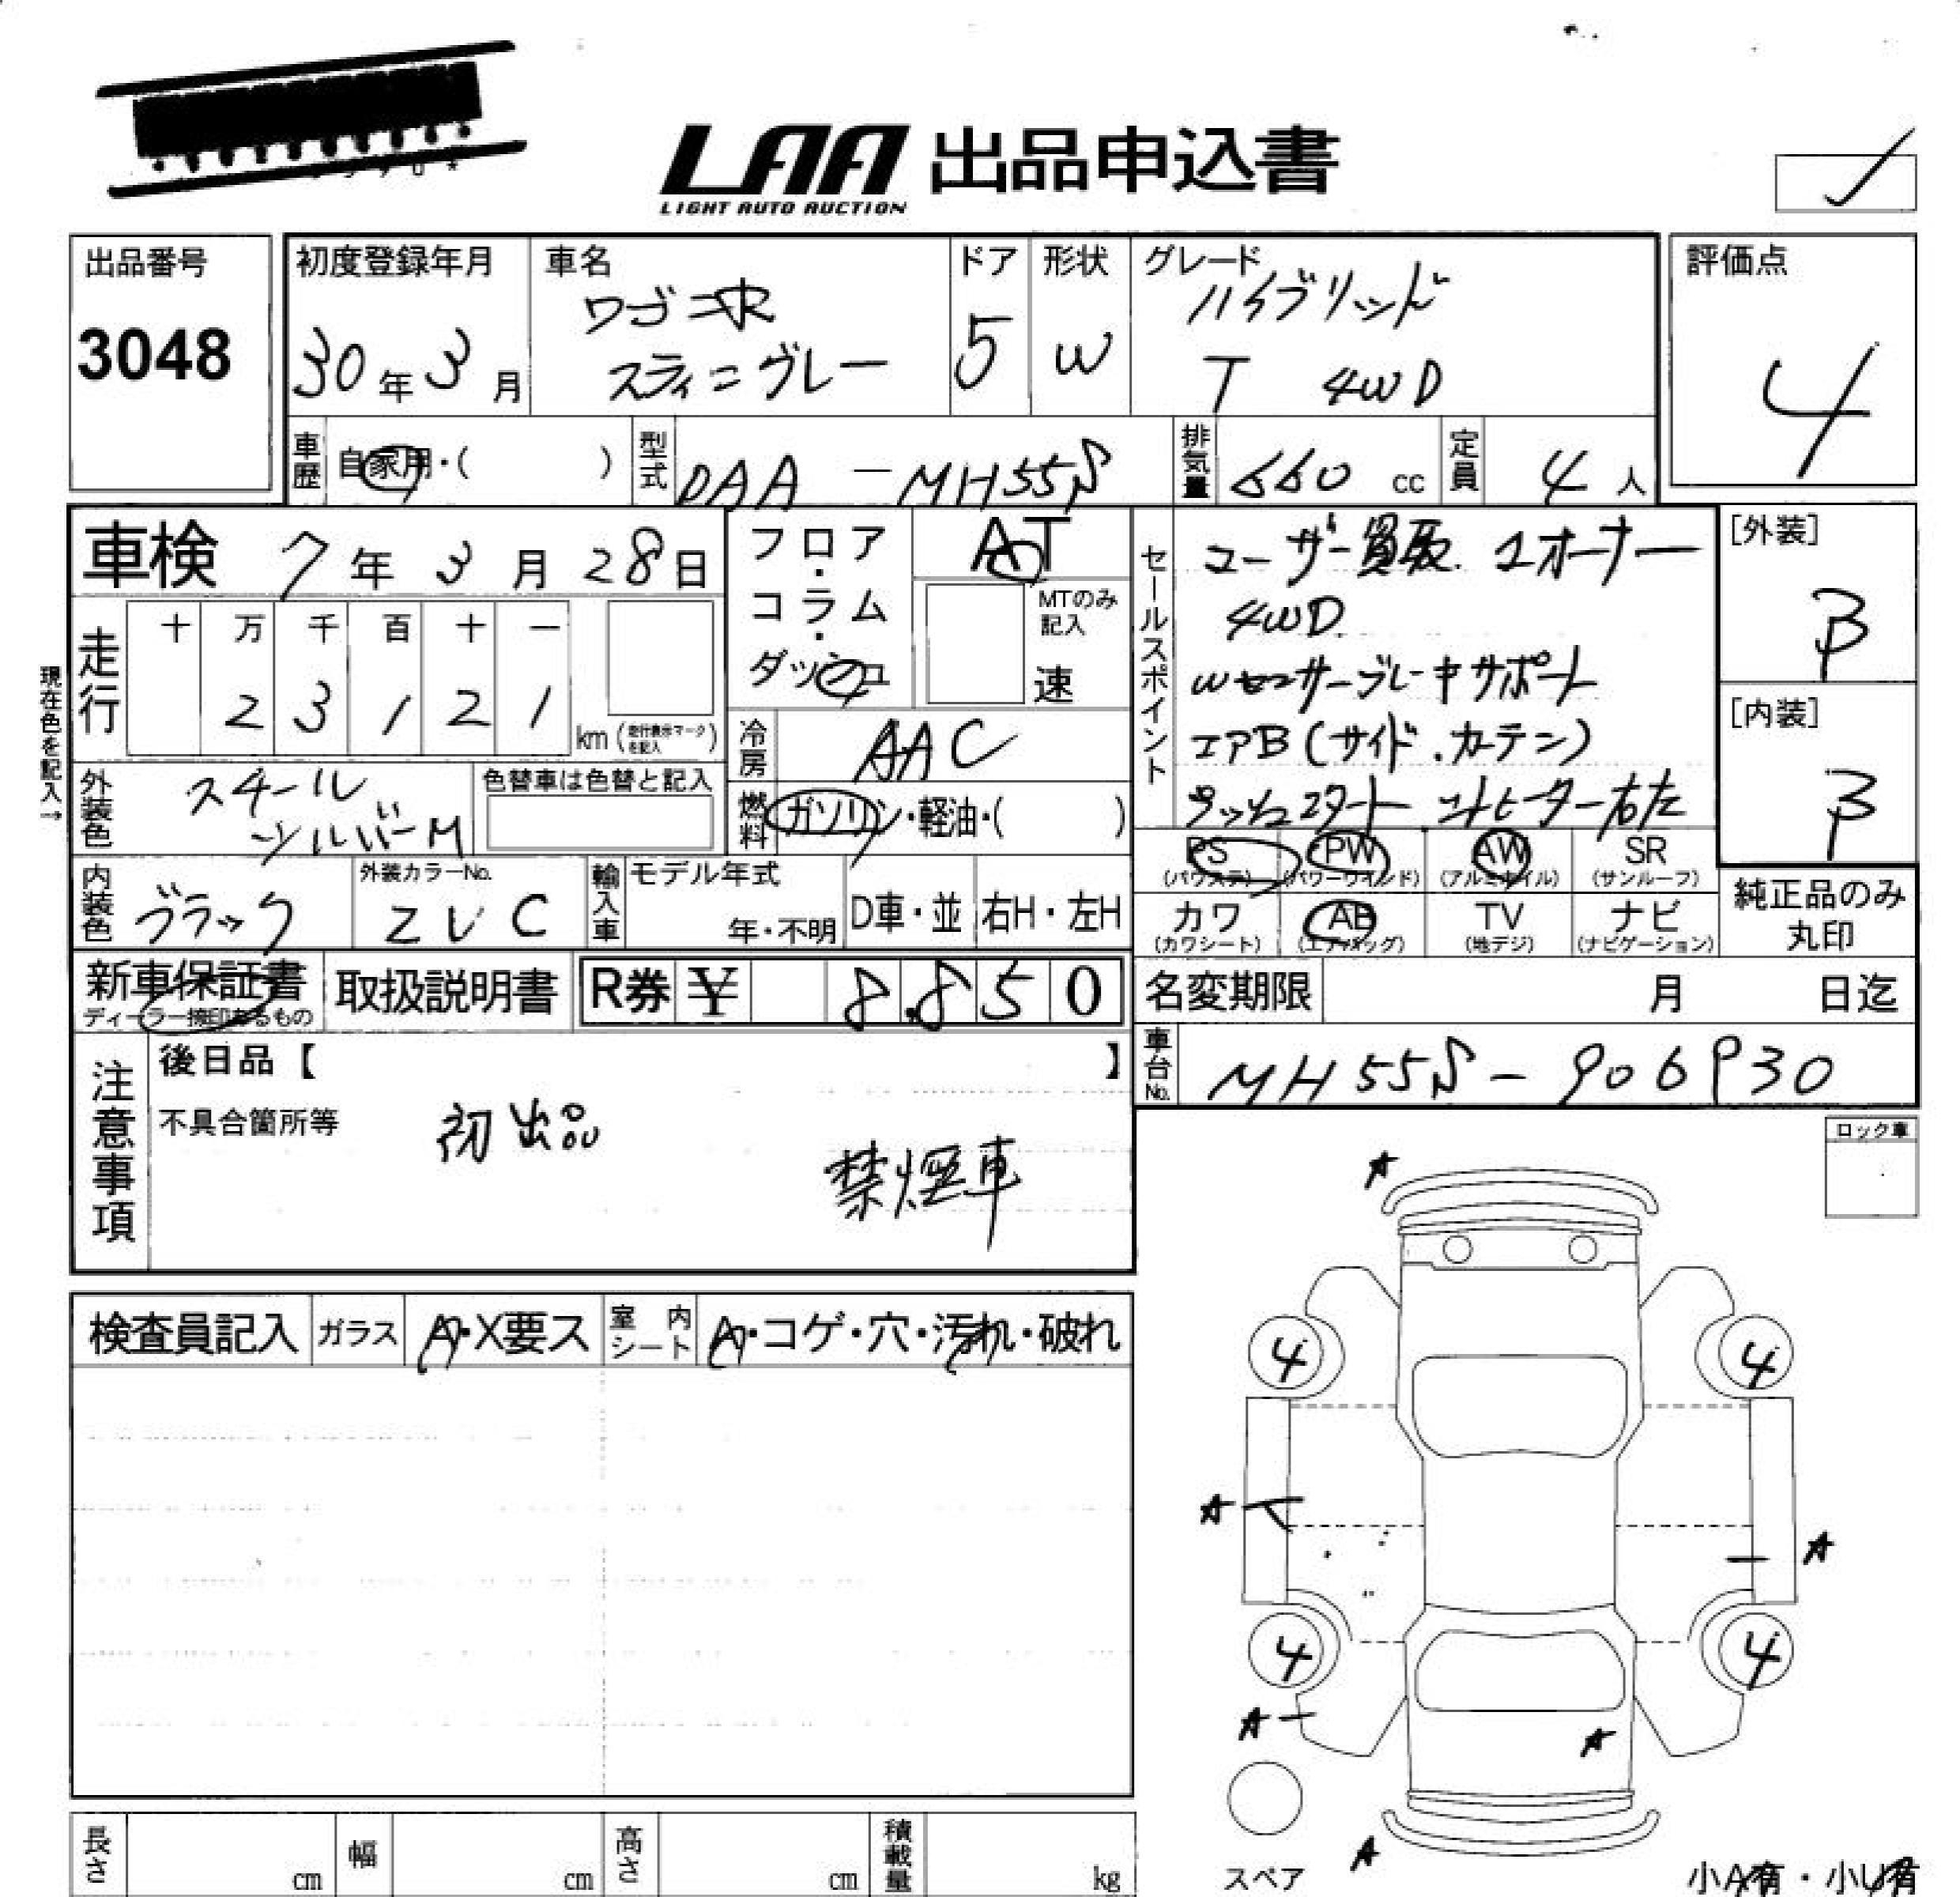 LAA 出品申込書
LIGHT AUTO AUCTION
出品番号
3048
初度登録年月
30年3月
車名
ワゴンR
スティングレー
ドア
5
形状
W
グレード
ハイブリッド
T 4WD
評価点
4
車歴
自家用・( )
型式
DAA-MH55S
排気量
660 cc
定員
4人
車検 7年3月28日
フロア・コラム・ダッシュ
AT
MTのみ記入
速
セールスポイント
ユーザー買取 1オーナー
4WD
Wセンサーブレーキサポート
エアB(サイド.カーテン)
プッシュスタート シートヒーター右左
[外装]
B
[内装]
B
現在色を記入→
走行
十 万 千 百 十 一
2 3 1 2 1
km(走行表示マークを記入)
冷房
AAC
外装色
スチール
シルバーM
色替車は色替と記入
燃料
ガソリン・軽油・( )
PS (パワステ)
PW (パワーウインド)
AW (アルミホイル)
SR (サンルーフ)
内装色
ブラック
外装カラーNo.
ZVC
輸入車
モデル年式
年・不明
D車・並
右H・左H
カワ (カワシート)
AB (エアバッグ)
TV (地デジ)
ナビ (ナビゲーション)
純正品のみ
丸印
新車保証書
ディーラー捺印あるもの
取扱説明書
R券 ¥ 8,850
名変期限 月 日迄
車台No.
MH55S-906930
注意事項
後日品【 】
不具合箇所等
初出品
禁煙車
ロック車
検査員記入
ガラス
A・X要ス
室内シート
A・コゲ・穴・汚れ・破れ
A
4 4
A
A
4 4
A
A
A
スペア
小A有・小U有
長さ cm
幅 cm
高さ cm
積載量 kg